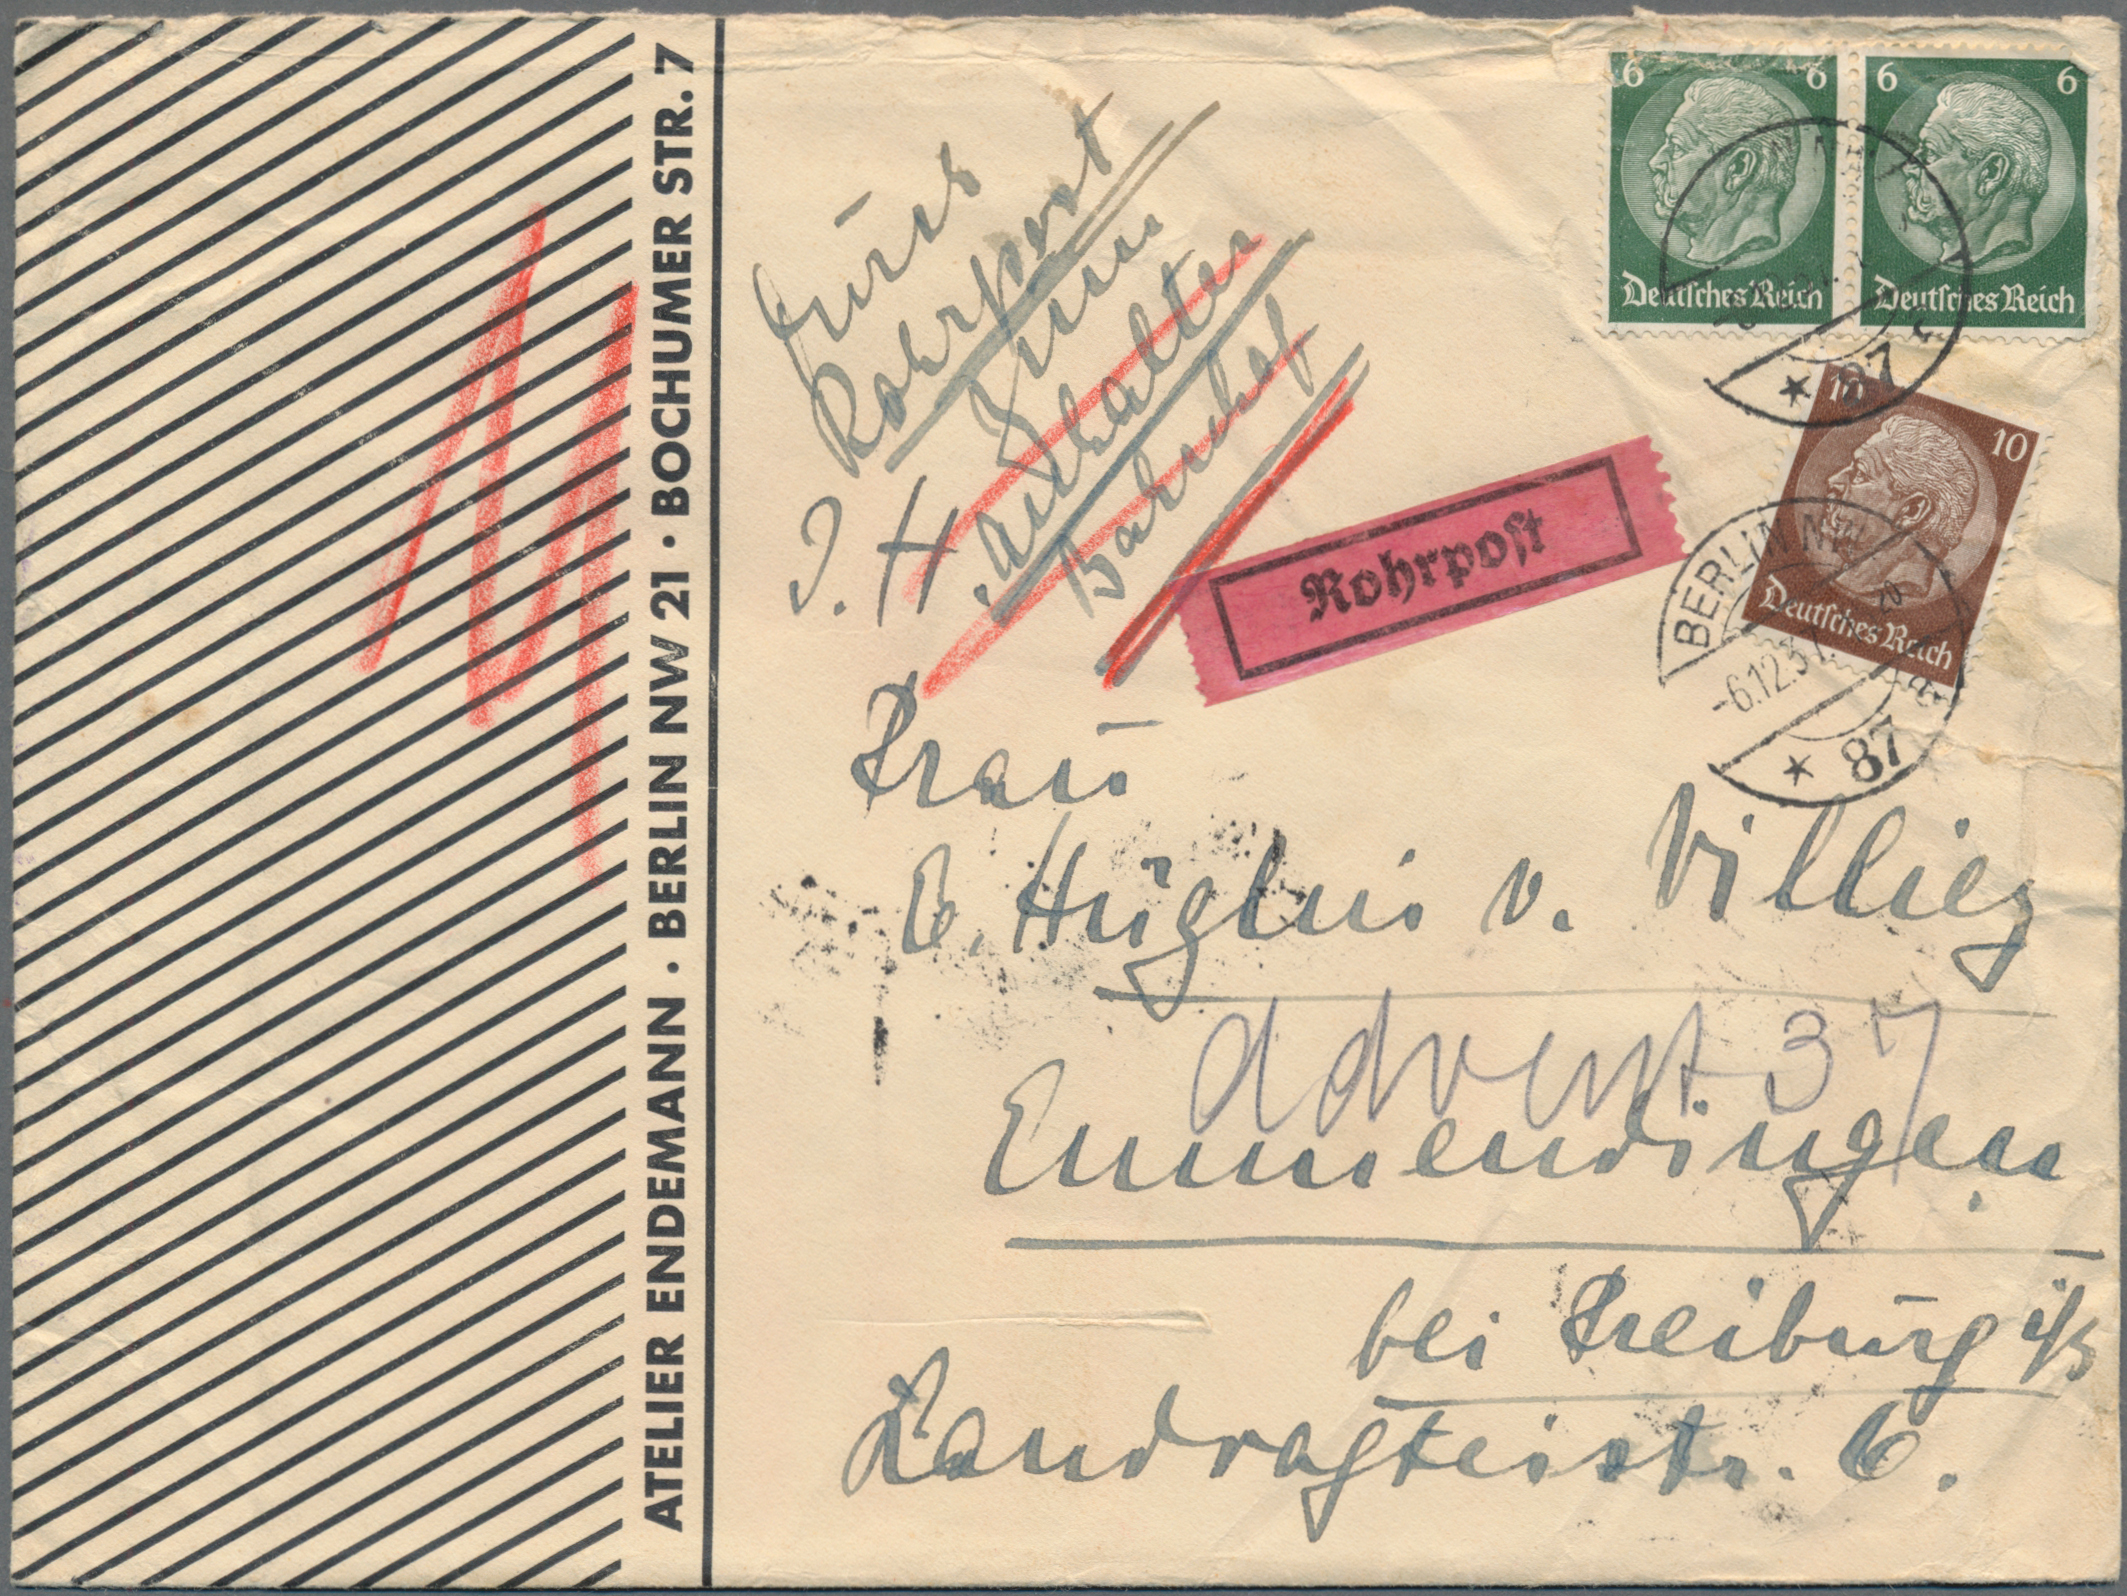 ATELIER ENDEMANN · BERLIN NW 21 · BOCHUMER STR. 7
durch
Rohrpost
zum
Anhalter
Bahnhof
Rohrpost
6 6
Deutsches Reich
6 6
Deutsches Reich
* 87
10 10
Deutsches Reich
BERLIN NW
-6.12.37
* 87
Frau
E. Hüglin v. Villiez
Advent 37
Emmendingen
bei Freiburg i/B
Landvogteistr. 6.